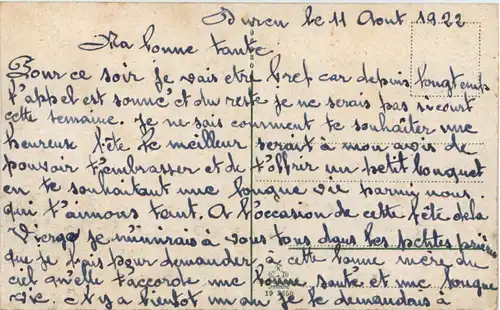 Duren le 11 Aout 1922
Ma bonne tante
Pour ce soir je vais etre bref car depuis longtemp
l'appel est sonné et du reste je ne serais pas si court
cette semaine. Je ne sais comment te souhaiter une
heureuse fête le meilleur serait à mon avis de
pouvoir t'embrasser et de t'offrir un petit bouquet
en te souhaitant une longue vie parmi nous
qui t'aimons tant. A l'occasion de cette fête de la
Vierge je m'unirais à vous tous dans les petites prières
que je fais pour demander à cette bonne mère du
ciel qu'elle t'accorde une bonne santé et une longue
vie. Il y a bientot un an je le demandais à